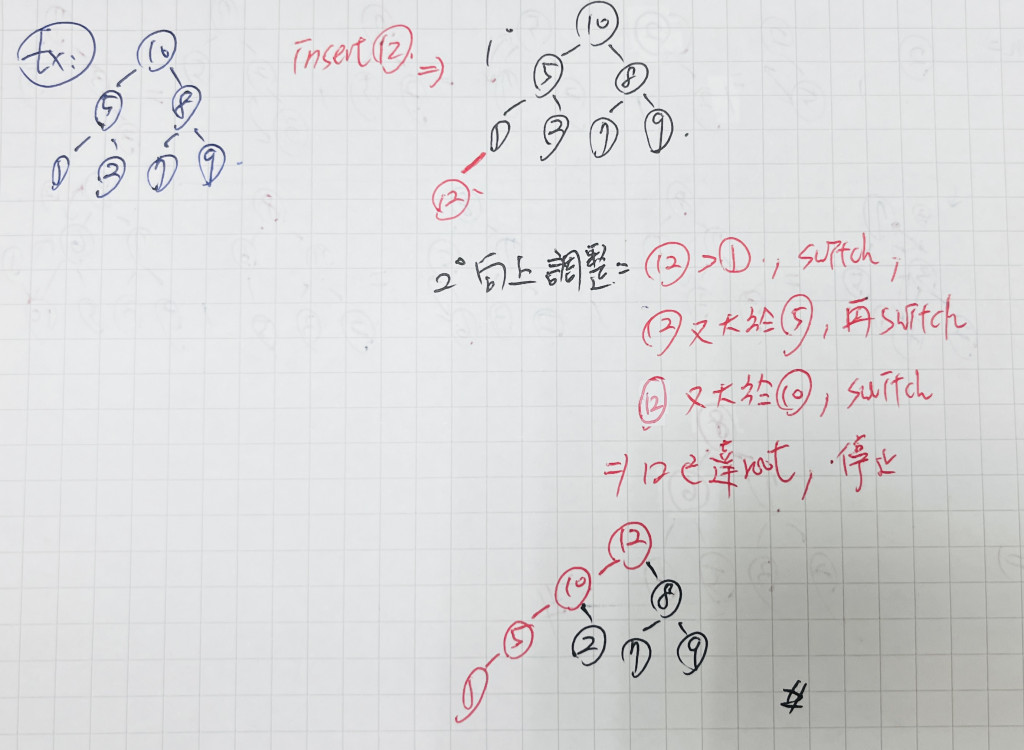 Ex:
10
5 8
1 3 7 9.
insert 12. ⇒ 1°
10
5 8
1 3 7 9.
12
2° 向上調整: 12 > 1, switch,
12 又大於 5, 再switch
12 又大於 10, switch
⇒ 12 已達root, 停止
12
10 8
5 2 7 9
1
#